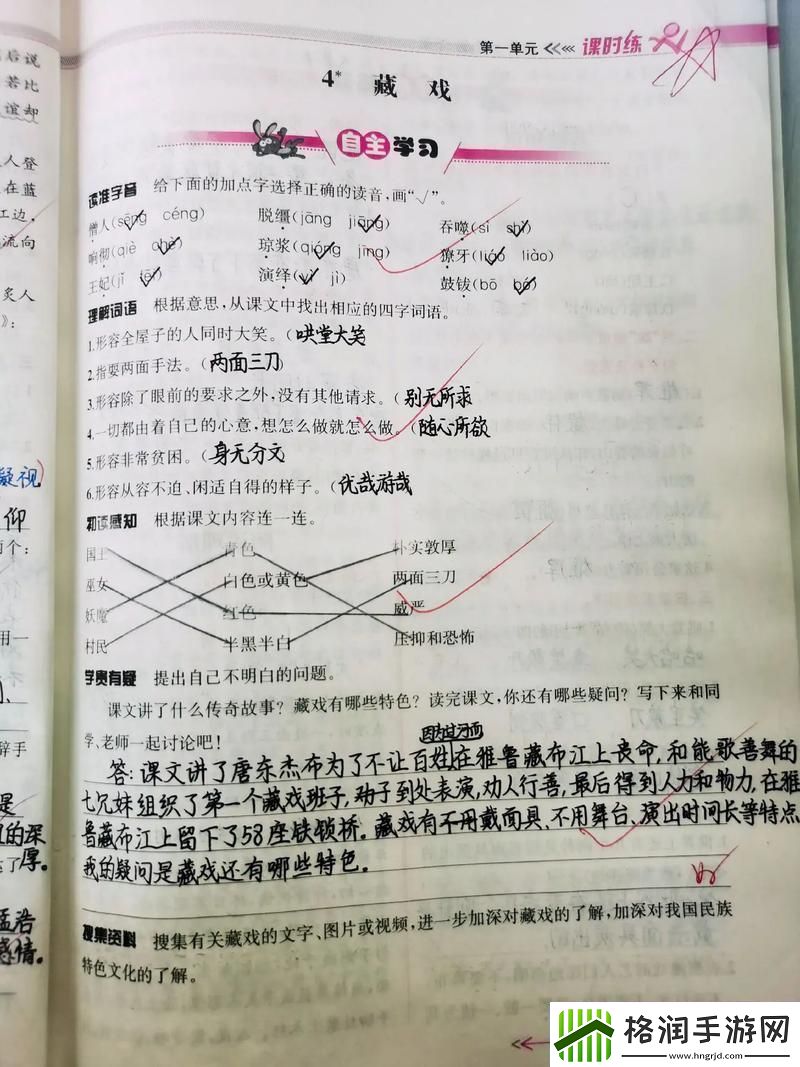 第一单元 课时练
4* 藏 戏
自主学习
读准字音 给下面的加点字选择正确的读音,画“√”。
僧人(sēng céng) 脱缰(jāng jiāng) 吞噬(sì shì)
响彻(qiè chè) 琼浆(qióng jīng) 獠牙(liáo liào)
王妃(jǐ fēi) 演绎(yì jì) 鼓钹(bō bó)
理解词语 根据意思,从课文中找出相应的四字词语。
1.形容全屋子的人同时大笑。(哄堂大笑
2.指耍两面手法。(两面三刀)
3.形容除了眼前的要求之外,没有其他请求。(别无所求
4.一切都由着自己的心意,想怎么做就怎么做。(随心所欲
5.形容非常贫困。(身无分文
6.形容从容不迫、闲适自得的样子。(优哉游哉
初读感知 根据课文内容连一连。
国王 青色 朴实敦厚
巫女 白色或黄色 两面三刀
妖魔 红色 威严
村民 半黑半白 压抑和恐怖
学贵有疑 提出自己不明白的问题。
课文讲了什么传奇故事?藏戏有哪些特色?读完课文,你还有哪些疑问?写下来和同
学、老师一起讨论吧!
因为过河而
答:课文讲了唐东杰布为了不让百姓在雅鲁藏布江上丧命,和能歌善舞的
七兄妹组织了第一个藏戏班子,到处表演,劝人行善,最后得到人力和物力,在雅
鲁藏布江上留下了58座铁锁桥。藏戏有不用戴面具、不用舞台、演出时间长等特点
我的疑问是藏戏还有哪些特色。
搜集资料 搜集有关藏戏的文字、图片或视频,进一步加深对藏戏的了解,加深对我国民族
特色文化的了解。
后说
若比
谊却
人登
在蓝
江边,
流向
炙人
》:
凝视)
仰
个:
用一
辞手
是
的深
厚。
孟浩
感情。
格润手游网
www.hngrjd.com